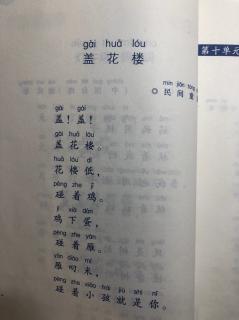 gài huā lóu
盖花楼
第十单元
mín jiān tóng
◎民间童
gài gài
盖！盖！
gài huā lóu
盖花楼。
huā lóu dī
花楼低，
pèng zhe jī
碰着鸡。
jī xià dàn
鸡下蛋，
pèng zhe yàn
碰着雁。
yàn diāo mǐ
雁叼米，
pèng zhe xiǎo hái jiù shì nǐ
碰着小孩就是你。